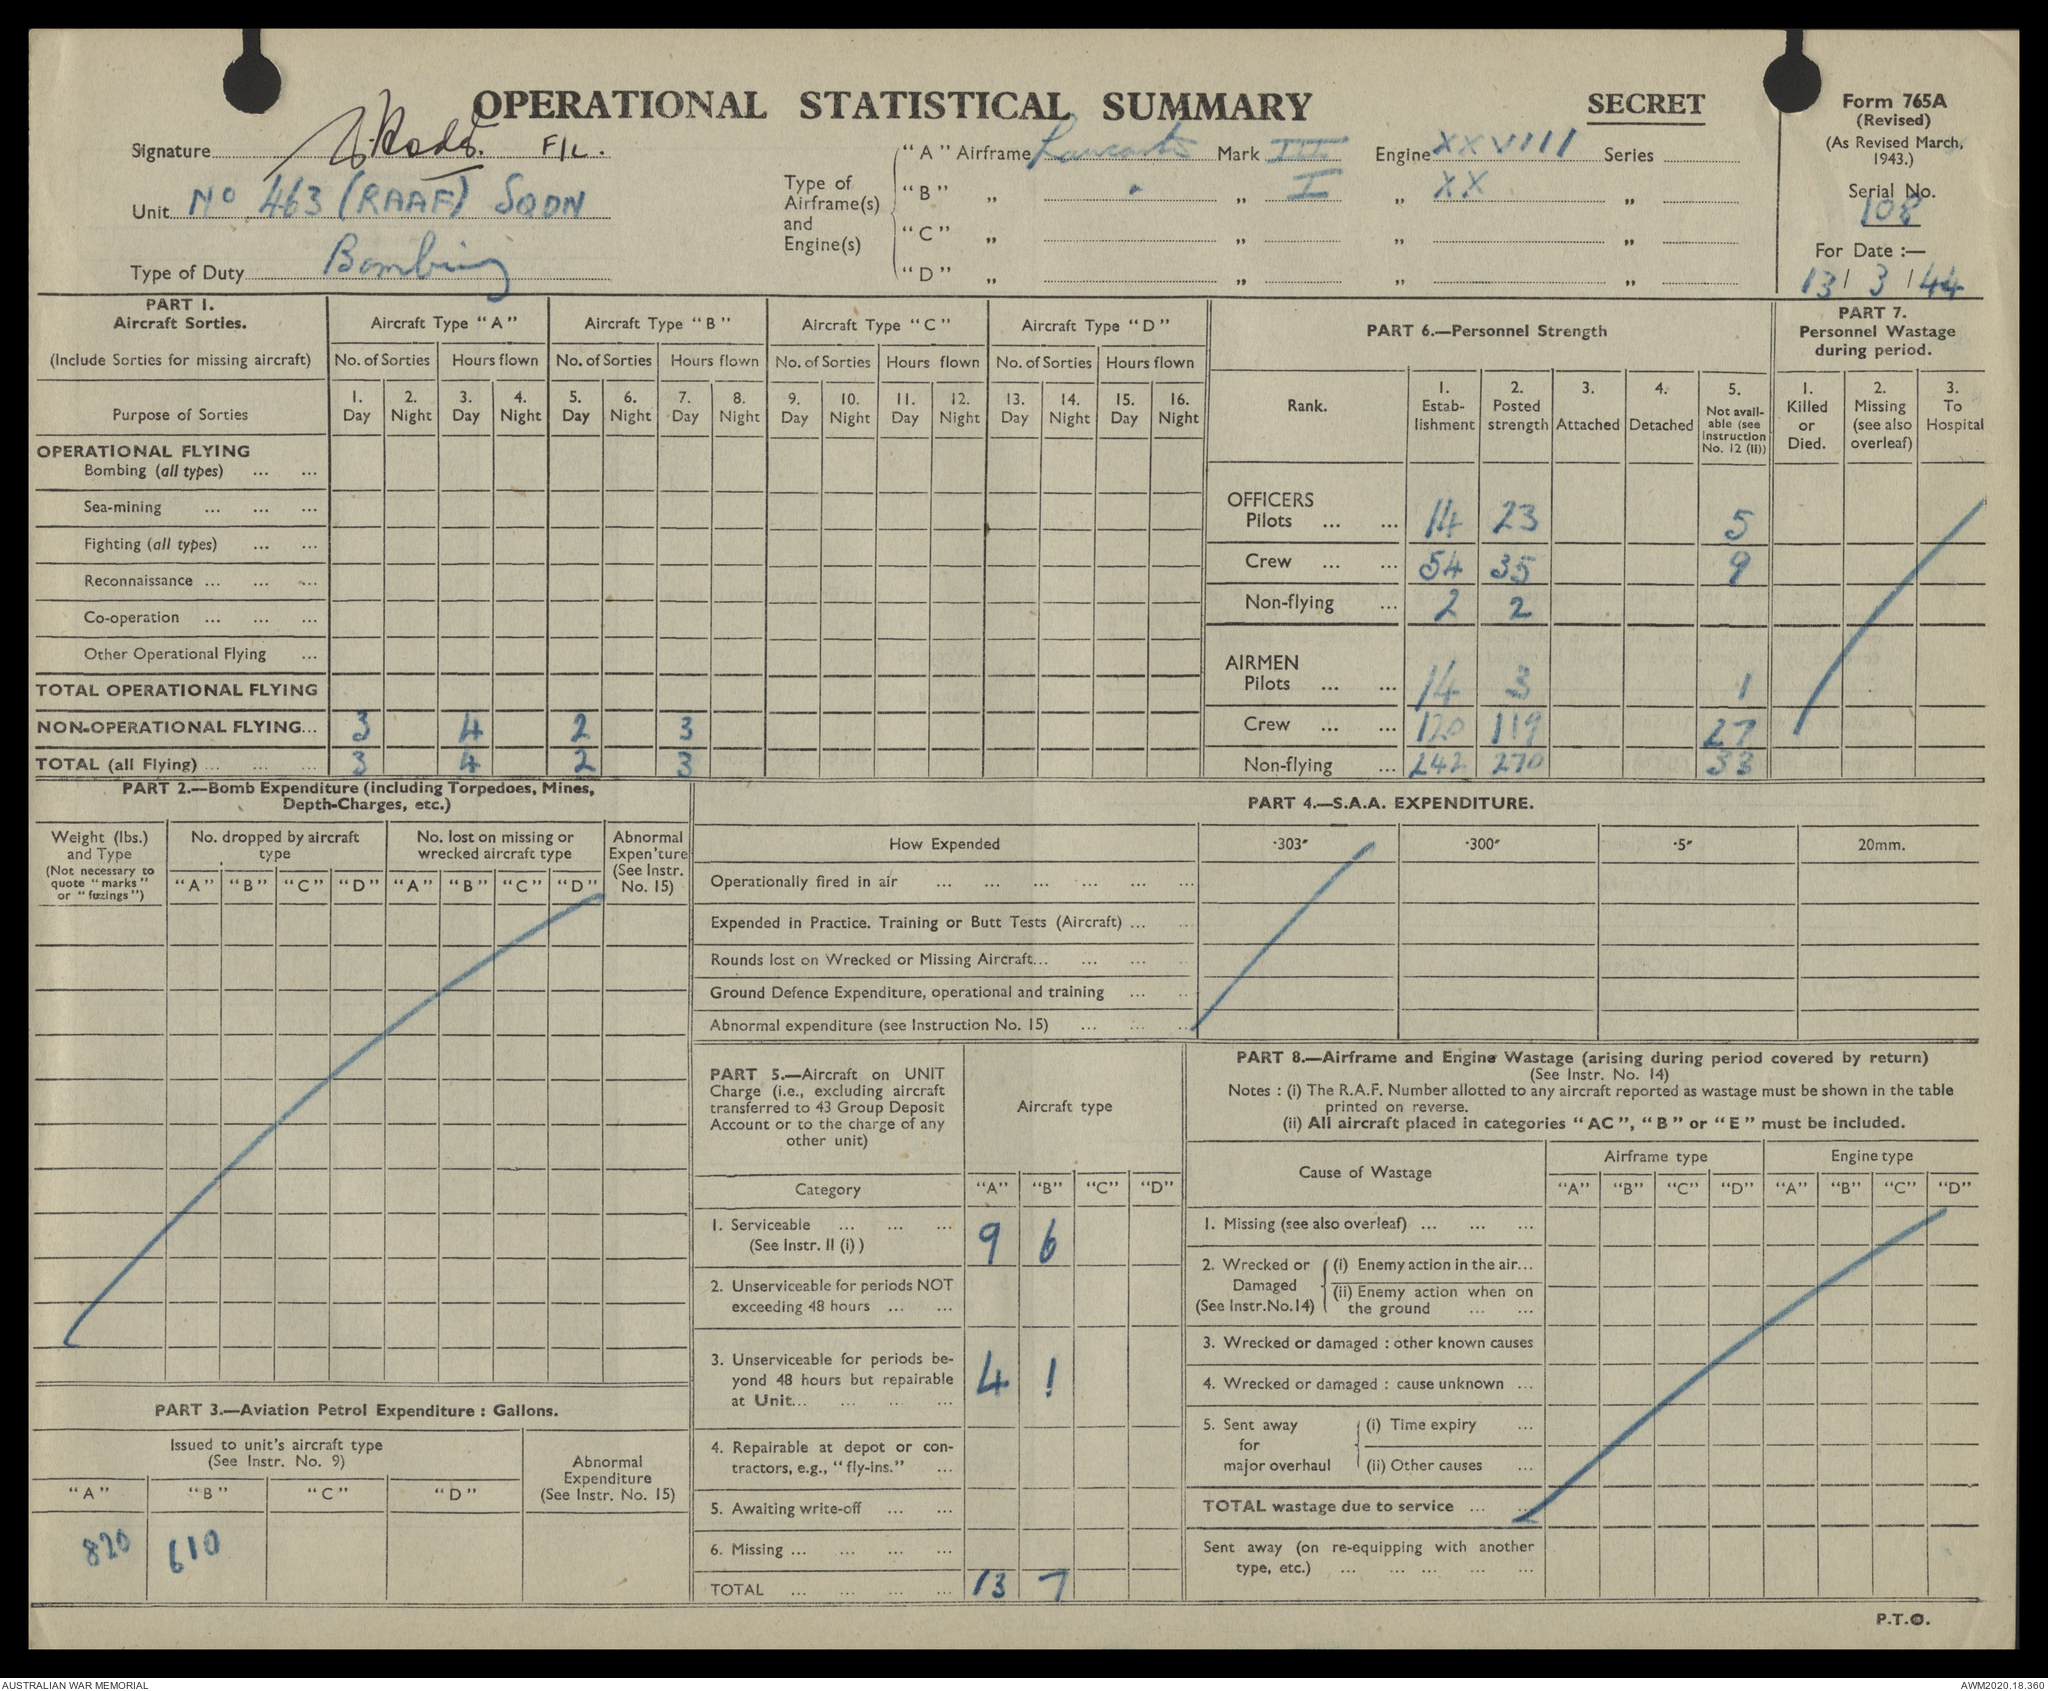 OPERATIONAL STATISTICAL SUMMARY
SECRET
Form 765A
(Revised)
(As Revised March,
1943.)
Serial No.
108
For Date :—
13 / 3 / 44
Signature F/L.
Unit No 463 (RAAF) SQDN
Type of Duty Bombing
Type of
Airframe(s)
and
Engine(s)
"A" Airframe Lancaster Mark III Engine XXVIII Series
"B" „ " „ I „ XX „
"C" „ „ „ „
"D" „ „ „ „
PART 1.
Aircraft Sorties.
(Include Sorties for missing aircraft)
Purpose of Sorties
Aircraft Type "A" Aircraft Type "B" Aircraft Type "C" Aircraft Type "D"
No. of Sorties Hours flown No. of Sorties Hours flown No. of Sorties Hours flown No. of Sorties Hours flown
1. 2. 3. 4. 5. 6. 7. 8. 9. 10. 11. 12. 13. 14. 15. 16.
Day Night Day Night Day Night Day Night Day Night Day Night Day Night Day Night
OPERATIONAL FLYING
Bombing (all types) ... ...
Sea-mining ... ... ...
Fighting (all types) ... ...
Reconnaissance ... ... ...
Co-operation ... ... ...
Other Operational Flying ...
TOTAL OPERATIONAL FLYING
NON-OPERATIONAL FLYING... 3 4 2 3
TOTAL (all Flying) ... ... ... 3 4 2 3
PART 6.—Personnel Strength
Rank.
1. Estab-lishment
2. Posted strength
3. Attached
4. Detached
5. Not avail-able (see Instruction No. 12 (II))
OFFICERS
Pilots ... ... 14 23 5
Crew ... ... 54 35 9
Non-flying ... 2 2
AIRMEN
Pilots ... ... 14 3 1
Crew ... ... 120 119 27
Non-flying ... 242 270 33
PART 7.
Personnel Wastage
during period.
1. Killed or Died.
2. Missing (see also overleaf)
3. To Hospital
PART 2.—Bomb Expenditure (including Torpedoes, Mines,
Depth-Charges, etc.)
Weight (lbs.)
and Type
(Not necessary to
quote "marks"
or "fuzings")
No. dropped by aircraft
type
No. lost on missing or
wrecked aircraft type
Abnormal
Expen'ture
(See Instr.
No. 15)
"A" "B" "C" "D" "A" "B" "C" "D"
PART 4.—S.A.A. EXPENDITURE.
How Expended ·303" ·300" ·5" 20mm.
Operationally fired in air ... ... ... ... ... ...
Expended in Practice. Training or Butt Tests (Aircraft) ... ...
Rounds lost on Wrecked or Missing Aircraft... ... ... ...
Ground Defence Expenditure, operational and training ... ...
Abnormal expenditure (see Instruction No. 15) ... ... ...
PART 3.—Aviation Petrol Expenditure : Gallons.
Issued to unit's aircraft type
(See Instr. No. 9)
Abnormal
Expenditure
(See Instr. No. 15)
"A" "B" "C" "D"
820 610
PART 5.—Aircraft on UNIT
Charge (i.e., excluding aircraft
transferred to 43 Group Deposit
Account or to the charge of any
other unit)
Aircraft type
Category "A" "B" "C" "D"
1. Serviceable ... ... ... 9 6
(See Instr. II (i) )
2. Unserviceable for periods NOT
exceeding 48 hours ... ...
3. Unserviceable for periods be-
yond 48 hours but repairable 4 1
at Unit... ... ... ...
4. Repairable at depot or con-
tractors, e.g., "fly-ins." ...
5. Awaiting write-off ... ...
6. Missing ... ... ... ...
TOTAL ... ... ... ... 13 7
PART 8.—Airframe and Engine Wastage (arising during period covered by return)
(See Instr. No. 14)
Notes : (i) The R.A.F. Number allotted to any aircraft reported as wastage must be shown in the table
printed on reverse.
(ii) All aircraft placed in categories "AC", "B" or "E" must be included.
Cause of Wastage
Airframe type Engine type
"A" "B" "C" "D" "A" "B" "C" "D"
1. Missing (see also overleaf) ... ... ...
2. Wrecked or
Damaged
(See Instr.No.14)
(i) Enemy action in the air...
(ii) Enemy action when on
the ground ... ...
3. Wrecked or damaged : other known causes
4. Wrecked or damaged : cause unknown ...
5. Sent away
for
major overhaul
(i) Time expiry ...
(ii) Other causes ...
TOTAL wastage due to service ... ...
Sent away (on re-equipping with another
type, etc.) ... ... ... ... ...
P.T.O.
AUSTRALIAN WAR MEMORIAL
AWM2020.18.360